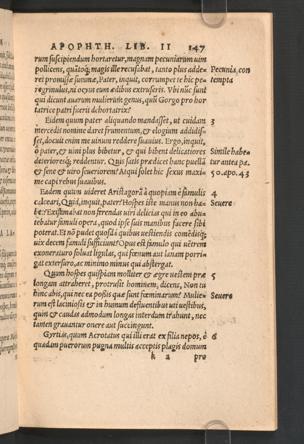 APOPHTH. LIB. II 147
rum suscipiendum hortaretur, magnam pecuniarum uim
pollicens, quātoq; magis ille recusabat, tanto plus adde-
ret promissæ summæ, Pater, inquit, corrumpet te hic pe-
regrinulus, ni ocyus eum ædibus extruseris. Vbi nūc sunt
qui dicunt auarum mulierum genus, quū Gorgo pro hor
tatrice patri fuerit dehortatrix?
Pecunia con
tempta
Eidem quum pater aliquando mandasset, ut cuidam
mercedis nomine daret frumentum, & elogium addidis-
set, docuit enim me uinum reddere suauius. Ergo, inquit,
ô pater, & uini plus bibetur, & qui bibent delicatiores
deterioresq; reddentur. Quis satis prædicet hanc puellā
& sene & uiro seueriorem? Atqui solet hic sexus maxi-
me capi rebus suauibus.
3
Simile habe-
tur antea pa.
50. apo. 43
Eadem quum uideret Aristagorā à quopiam è famulis
calceari, Quid, inquit, pater? Hospes iste manus non ha-
bet? Existimabat non ferendas uiri delicias qui in eo abu-
teretur famuli opera, quod ipse suis manibus facere sibi
poterat. Et nō pudet quosdā quibus uestiendis comēdisq;
uix decem famuli sufficiunt? Opus est famulo qui uētrem
exoneraturo soluat ligulas, qui fœnum aut lanam porri-
gat extersuro, ac nimium minus qui abstergat.
4
Seuere
Quum hospes quispiam molliter & ægre uestem præ
longam attraheret, protrusit hominem, dicens, Non tu
hinc abis, qui nec ea possis quæ sunt fœminarum? Mulie-
rum est laciniosis & in humum defluentibus uti uestibus,
quin & caudas admodum longas interdum trahunt, nec
tamen grauantur onere aut succingunt.
5
Seuere
Gyrtias, quum Acrotatus qui illi erat ex filia nepos, è
quadam puerorum pugna multis acceptis plagis domum
6
k 2 pro